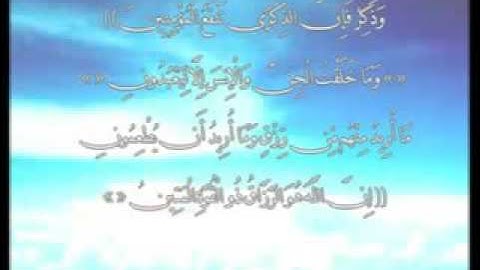 وَذَكِّرْ فَإِنَّ الذِّكْرَى تَنفَعُ الْمُؤْمِنِينَ ((
«« وَمَا خَلَقْتُ الْجِنَّ وَالْإِنسَ إِلَّا لِيَعْبُدُونِ ««
مَا أُرِيدُ مِنْهُم مِّن رِّزْقٍ وَمَا أُرِيدُ أَن يُطْعِمُونِ
)) إِنَّ اللَّهَ هُوَ الرَّزَّاقُ ذُو الْقُوَّةِ الْمَتِينُ »»